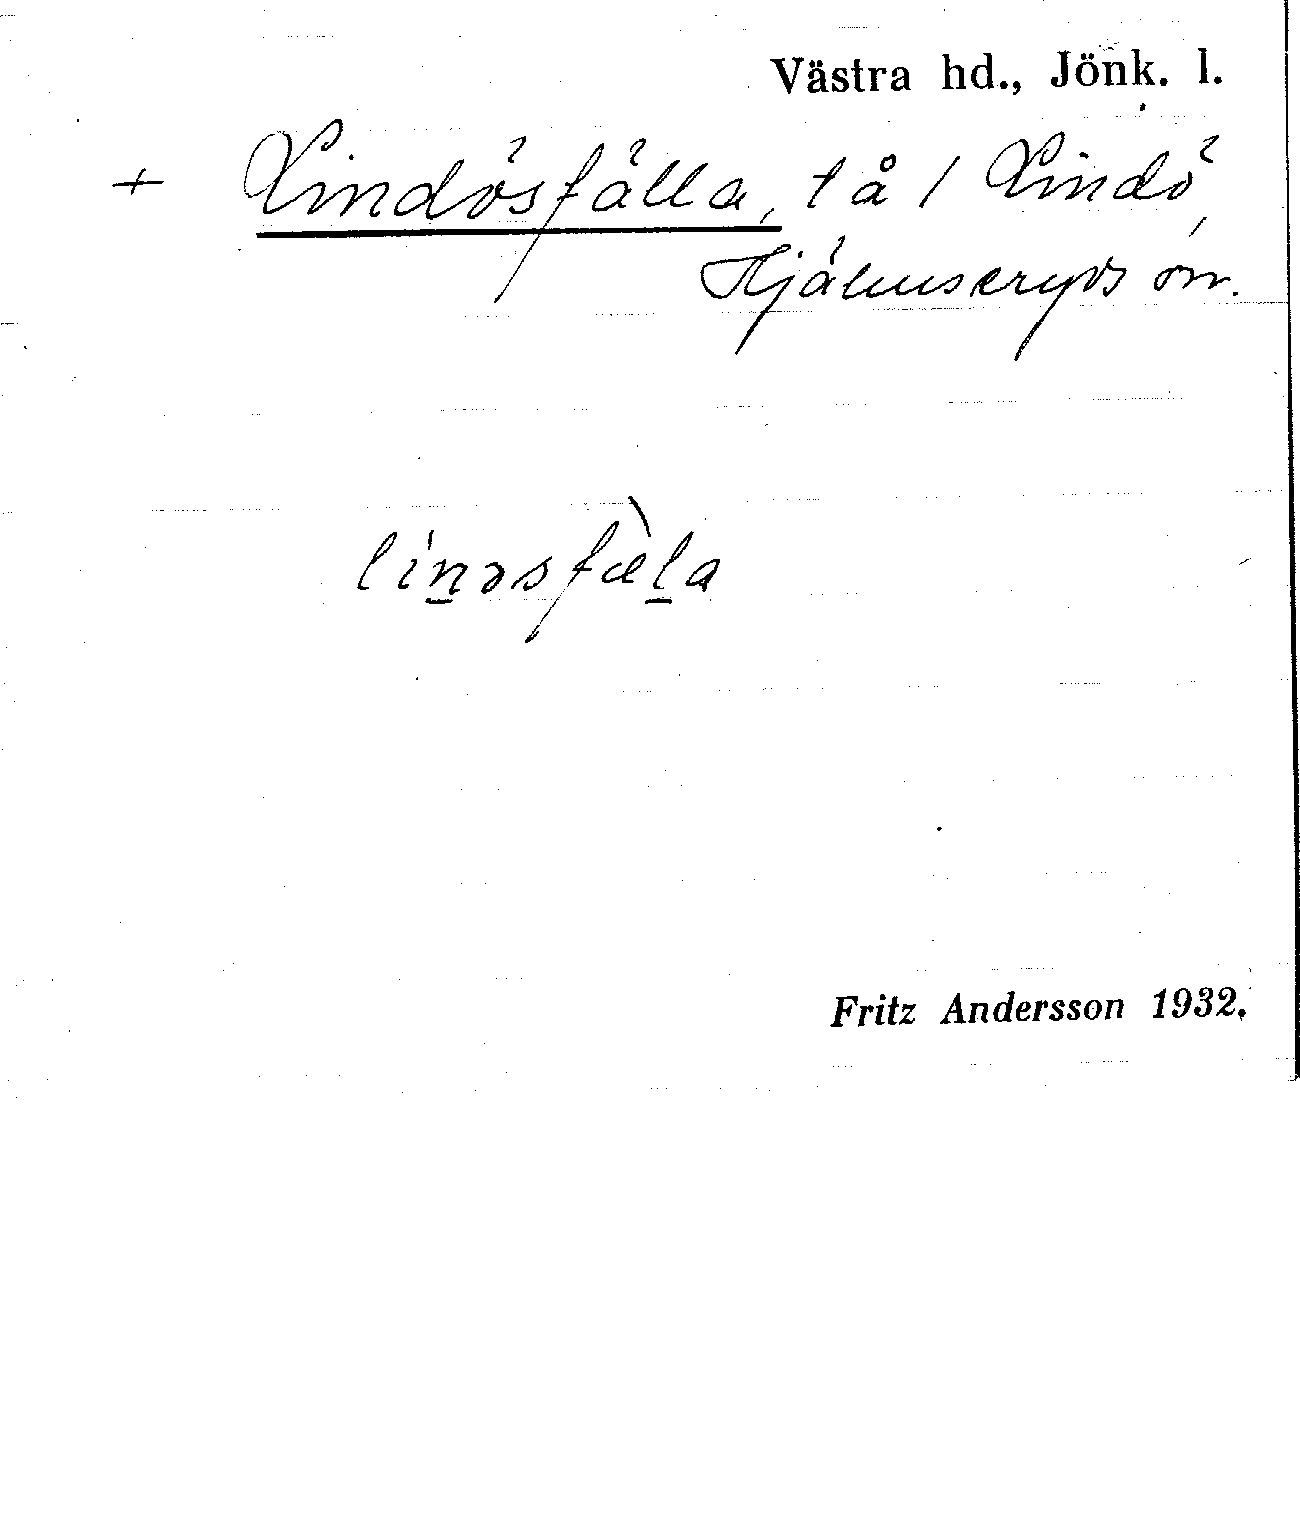 Västra hd., Jönk. l.
+ Lindösfälla, tå / Lindö,
Hjälmseryds sn.
li'n̲əsfæ̀l̲a
Fritz Andersson 1932.